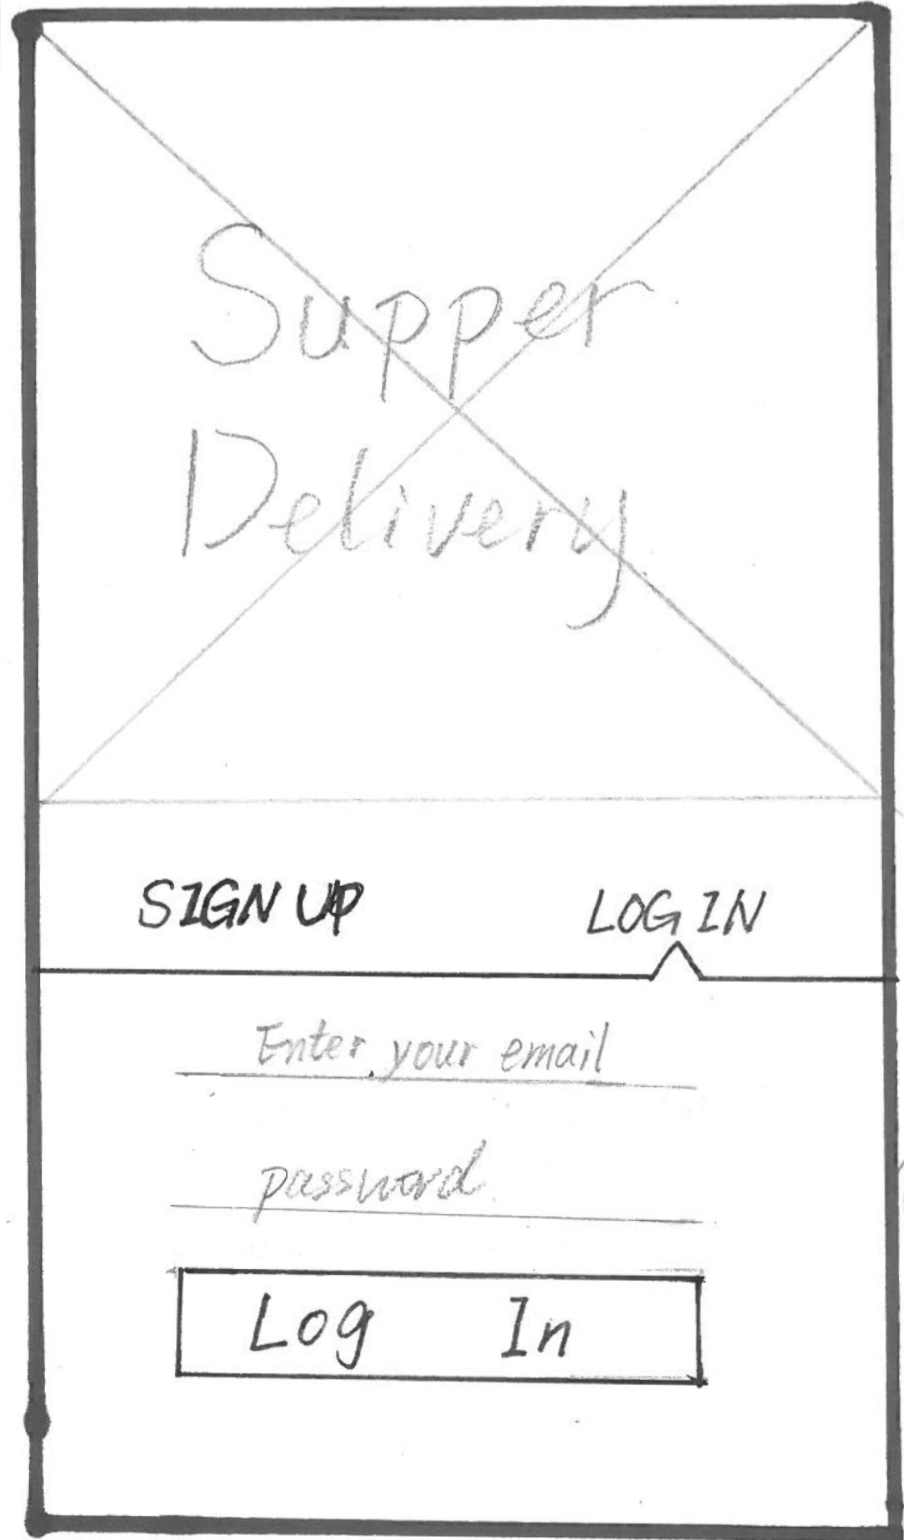 Supper
Delivery
SIGN UP LOG IN
Enter your email
password
Log In